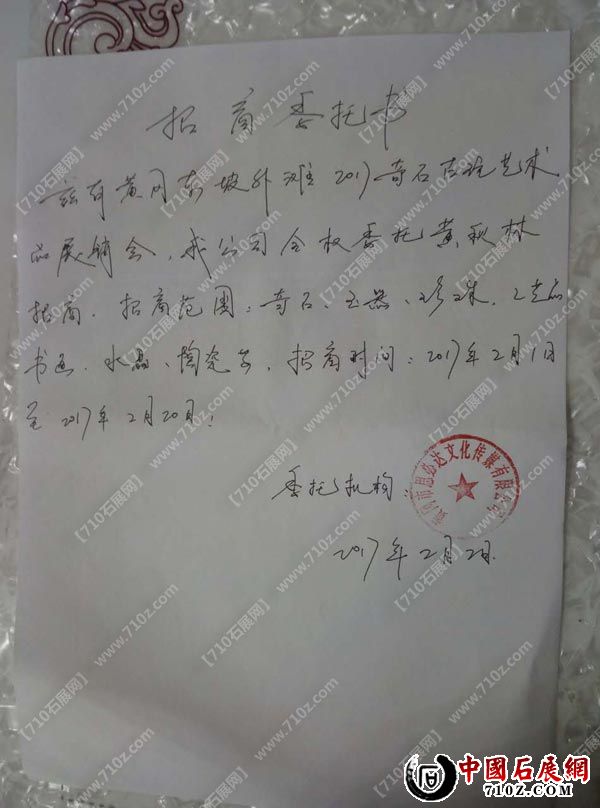 招商委托书
兹有黄冈东坡外滩2017奇石古玩艺术
品展销会，我公司全权委托黄秋林
招商．招商范围：奇石、玉器、珍珠、工艺品
书画、水晶、陶瓷等，招商时间：2017年2月1日
至2017年2月20日！
委托机构
黄冈市思必达文化传媒有限公司
2017年2月2日.
【710石展网】
www.710z.com
中國石展網
710Z.COM